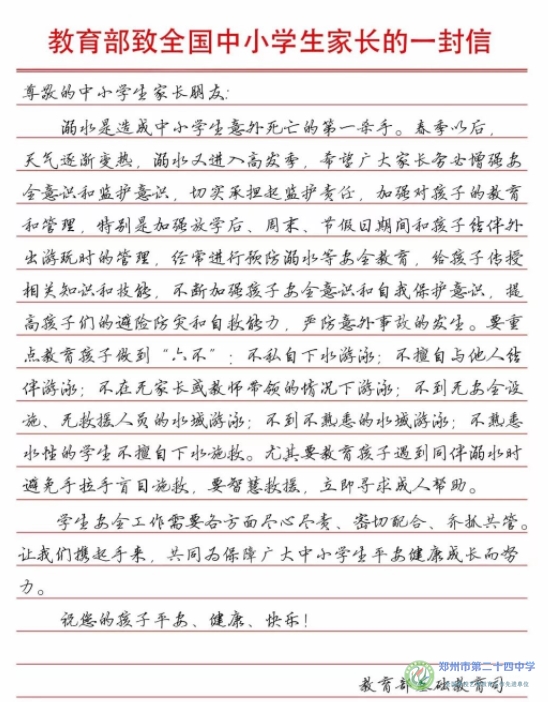 教育部致全国中小学生家长的一封信
尊敬的中小学生家长朋友：
溺水是造成中小学生意外死亡的第一杀手。春季以后，
天气逐渐变热，溺水又进入高发季，希望广大家长务必增强安
全意识和监护意识，切实承担起监护责任，加强对孩子的教育
和管理，特别是加强放学后、周末、节假日期间和孩子结伴外
出游玩时的管理，经常进行预防溺水等安全教育，给孩子传授
相关知识和技能，不断加强孩子安全意识和自我保护意识，提
高孩子们的避险防灾和自救能力，严防意外事故的发生。要重
点教育孩子做到“六不”：不私自下水游泳；不擅自与他人结
伴游泳；不在无家长或教师带领的情况下游泳；不到无安全设
施、无救援人员的水域游泳；不到不熟悉的水域游泳；不熟悉
水性的学生不擅自下水施救。尤其要教育孩子遇到同伴溺水时
避免手拉手盲目施救，要智慧救援，立即寻求成人帮助。
学生安全工作需要各方面尽心尽责、密切配合、齐抓共管。
让我们携起手来，共同为保障广大中小学生平安健康成长而努
力。
祝您的孩子平安、健康、快乐！
郑州市第二十四中学
教育部基础教育司